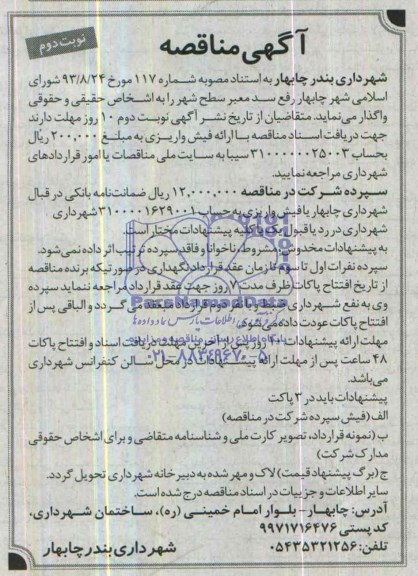 نوبت دوم
آگهی مناقصه
شهرداری بندر چابهار به استناد مصوبه شماره ۱۱۷ مورخ ۹۳/۸/۲۴ شورای
اسلامی شهر چابهار رفع سد معبر سطح شهر را به اشخاص حقیقی و حقوقی
واگذار می‌نماید. متقاضیان از تاریخ نشر آگهی نوبت دوم ۱۰ روز مهلت دارند
جهت دریافت اسناد مناقصه با ارائه فیش واریزی به مبلغ ۲۰۰,۰۰۰ ریال
بحساب ۳۱۰۰۰۰۰۰۲۵۰۰۳ سیبا به سایت ملی مناقصات یا امور قراردادهای
شهرداری مراجعه نمایید.
سپرده شرکت در مناقصه ۱۲,۰۰۰,۰۰۰ ریال ضمانت‌نامه بانکی در قبال
شهرداری چابهار یا فیش واریزی به حساب ۳۱۰۰۰۰۱۶۲۹۰۰۱ شهرداری
شهرداری در رد یا قبول یک یا کلیه پیشنهادات مختار است.
به پیشنهادات مخدوش، مشروط، ناخوانا و فاقد سپرده ترتیب اثر داده نمی‌شود.
سپرده نفرات اول تا سوم تا زمان عقد قرارداد نگهداری در صورتیکه برنده مناقصه
از تاریخ افتتاح پاکات ظرف مدت ۷ روز جهت عقد قرارداد مراجعه ننماید سپرده
وی به نفع شهرداری ضبط با نفر دوم قرارداد منعقد می‌گردد و الباقی پس از
افتتاح پاکات عودت داده می‌شود.
مهلت ارائه پیشنهادات ۱۰ روز پس از آخرین مهلت دریافت اسناد و افتتاح پاکات
۴۸ ساعت پس از مهلت ارائه پیشنهادات در محل سالن کنفرانس شهرداری
می‌باشد.
پیشنهادات باید در ۳ پاکت
الف (فیش سپرده شرکت در مناقصه)
ب (نمونه قرارداد، تصویر کارت ملی و شناسنامه متقاضی و برای اشخاص حقوقی
مدارک شرکت)
ج (برگ پیشنهاد قیمت) لاک و مهر شده به دبیرخانه شهرداری تحویل گردد.
سایر اطلاعات و جزییات در اسناد مناقصه درج شده است.
آدرس: چابهار - بلوار امام خمینی (ره)، ساختمان شهرداری،
کد پستی ۹۹۷۱۷۱۶۴۷۶
تلفن: ۰۵۴۳۵۳۲۱۲۵۶
شهرداری بندر چابهار
ParsNamadData
۰۲۱-۸۸۳۴۹۶۷۰-۵